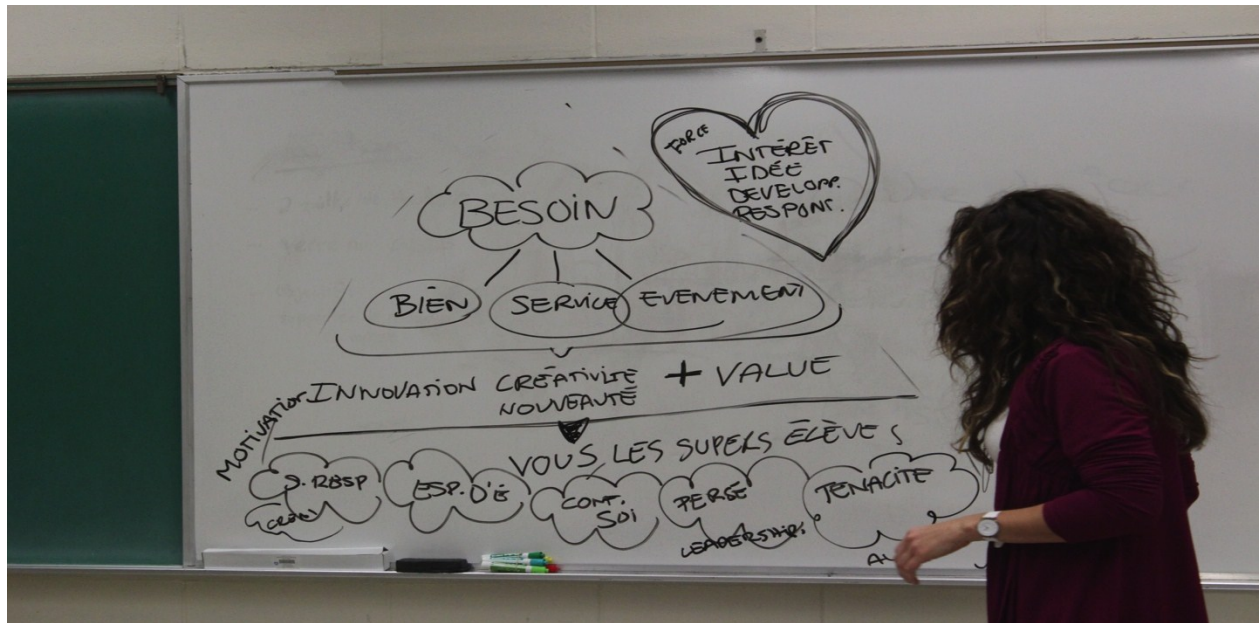 FORCE
INTÉRÊT
IDÉE
DEVELOPP.
RESPONS.
BESOIN
BIEN SERVICE EVENEMENT
MOTIVATION
INNOVATION CRÉATIVITÉ + VALUE
NOUVEAUTÉ
VOUS LES SUPERS ÉLÈVES
S. RESP
ESP. D'É
CONT.
SOI
PERSÉ
TENACITE
LEADERSHIP.